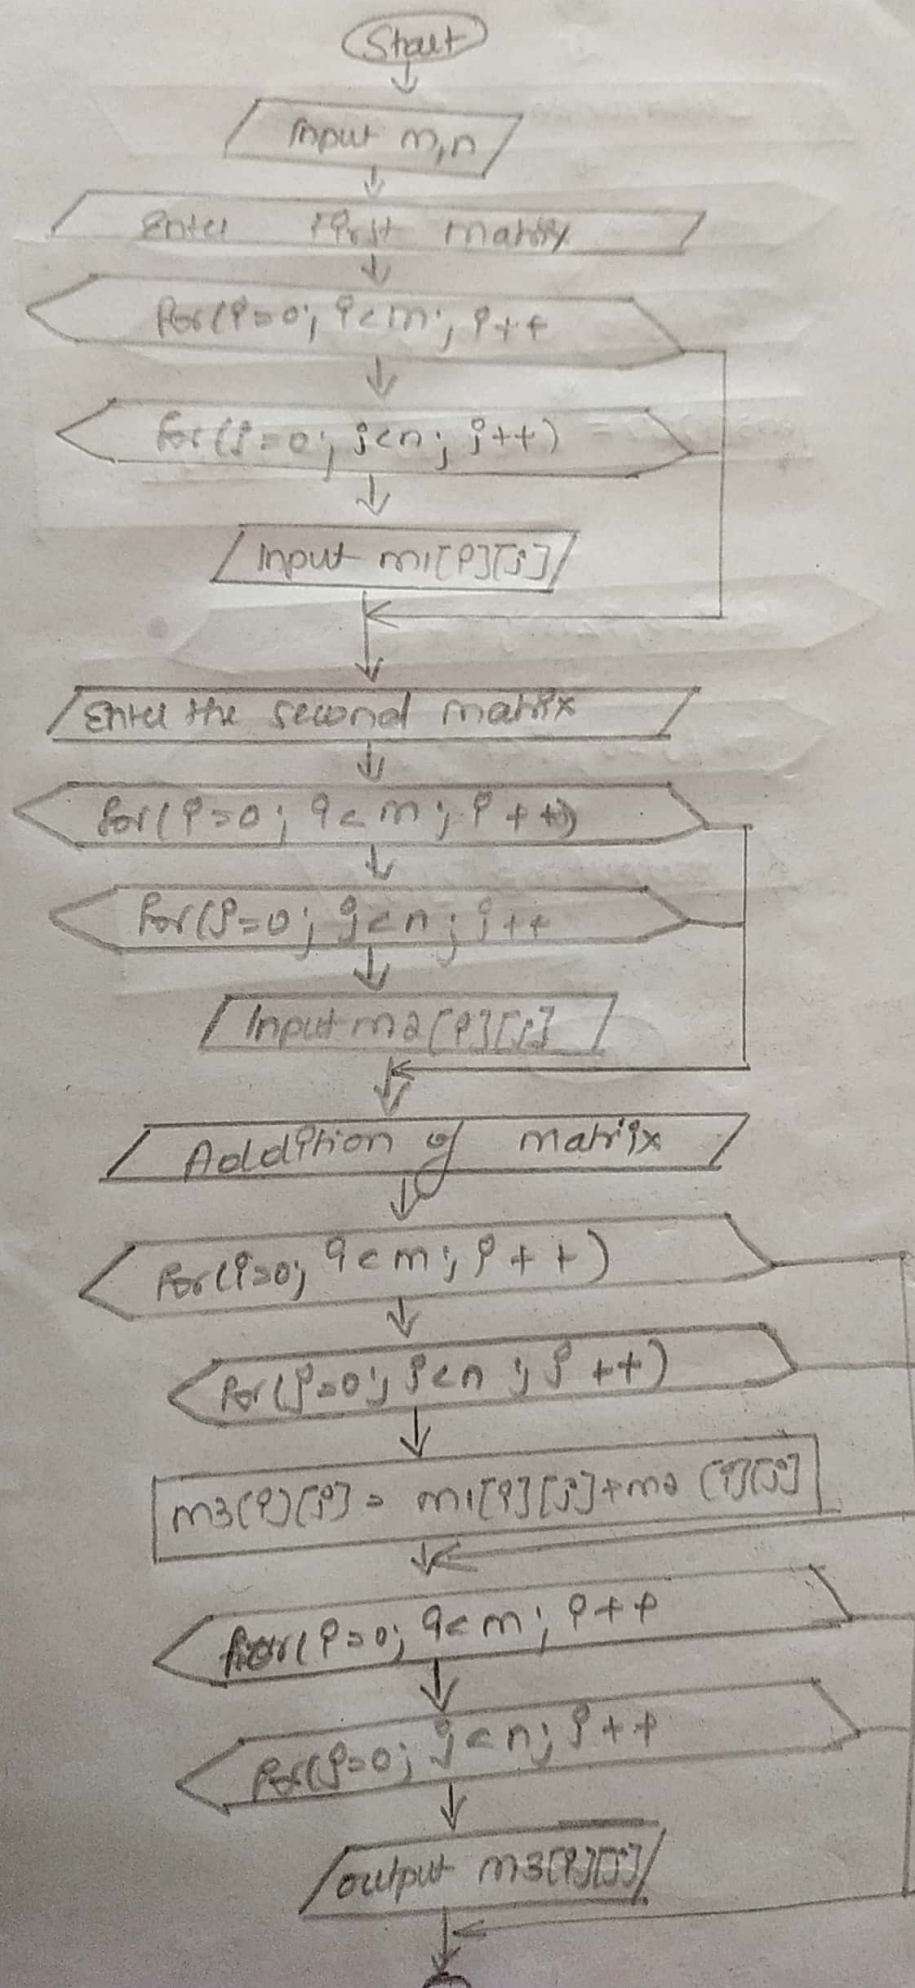 Start
Input m,n
Enter first matrix
for(i=0; i<m; i++
for(j=0; j<n; j++)
Input m1[i][j]
Enter the second matrix
for(i=0; i<m; i++)
for(j=0; j<n; j++
Input m2[i][j]
Addition of matrix
for(i=0; i<m; i++)
for(j=0; j<n; j++)
m3[i][j] = m1[i][j]+m2[i][j]
for(i=0; i<m; i++
for(j=0; j<n; j++
output m3[i][j]